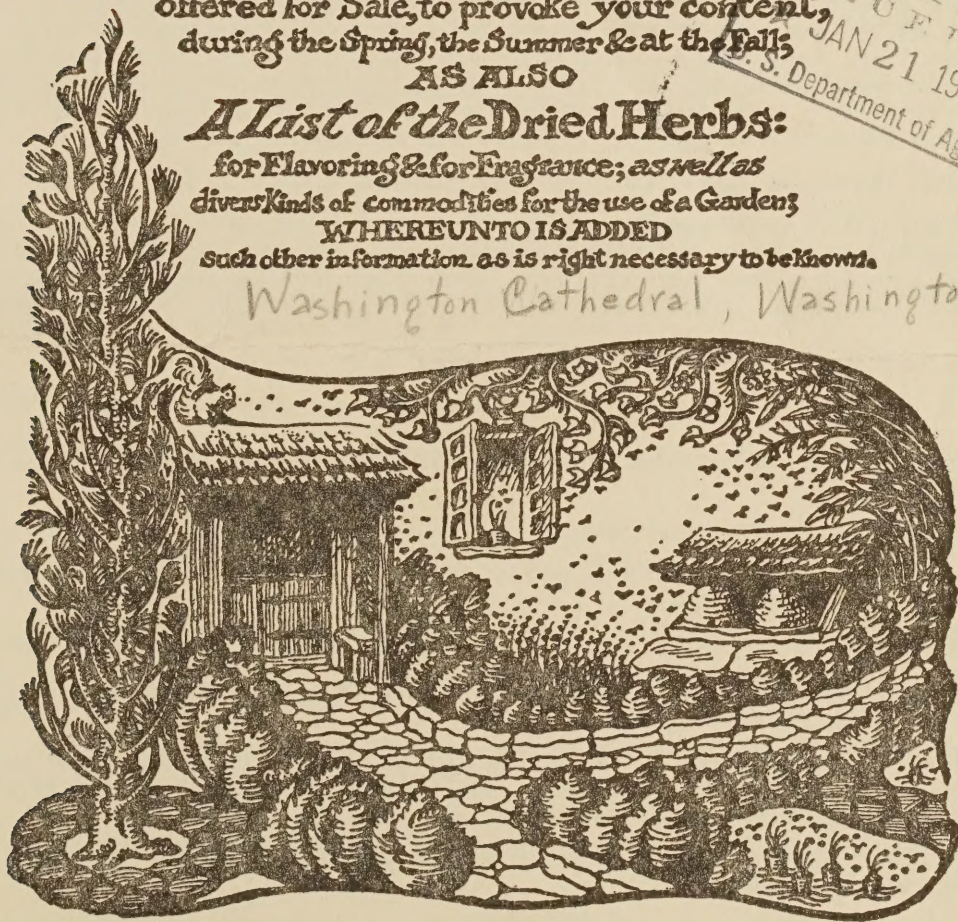 offered for Sale, to provoke your content,
during the Spring, the Summer & at the Fall;
AS ALSO
A List of the Dried Herbs:
for Flavoring & for Fragrance; as well as
divers Kinds of commodities for the use of a Garden;
WHEREUNTO IS ADDED
such other information as is right necessary to be known.
JAN 21 19
U. S. Department of Ag
Washington Cathedral, Washingto